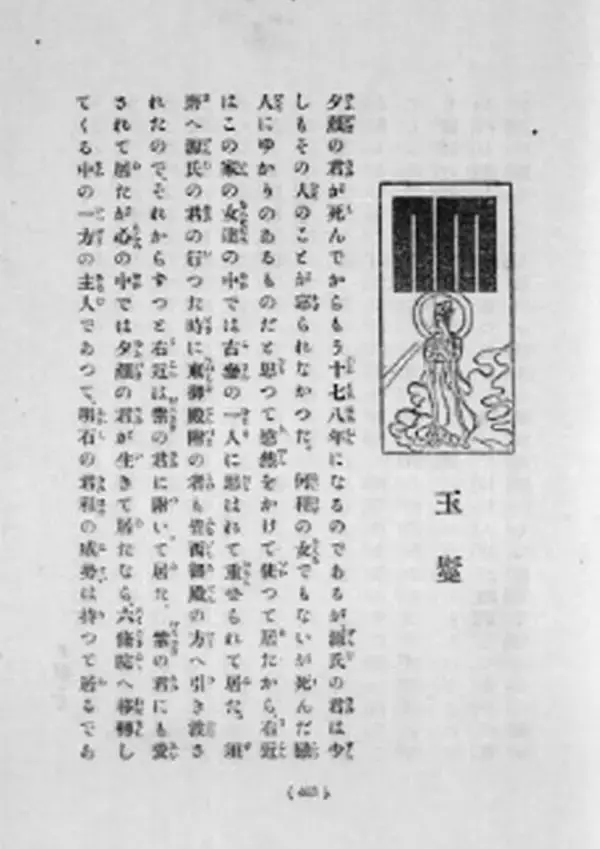 玉鬘
夕顔の君が死んでからもう十七八年になるのであるが源氏の君は少
しもその人のことが忘られなかつた。何程の女でもないが死んだ
人にゆかりのあるものだと思つて をかけて使つて居たから、右近
はこの家の女達の中では古参の一人に思はれて重せられて居た。須
磨へ源氏の君の行つた時に東御殿附の者も皆西御殿の方へ引き渡さ
れたので、それからずつと右近は紫の君に附いて居た。紫の君にも愛
されて居たが心の中では夕顔の君が生きて居たなら、六條院へ移轉し
てくる中の一方の主人であつて、明石の君程の威勢は持つて居るであ